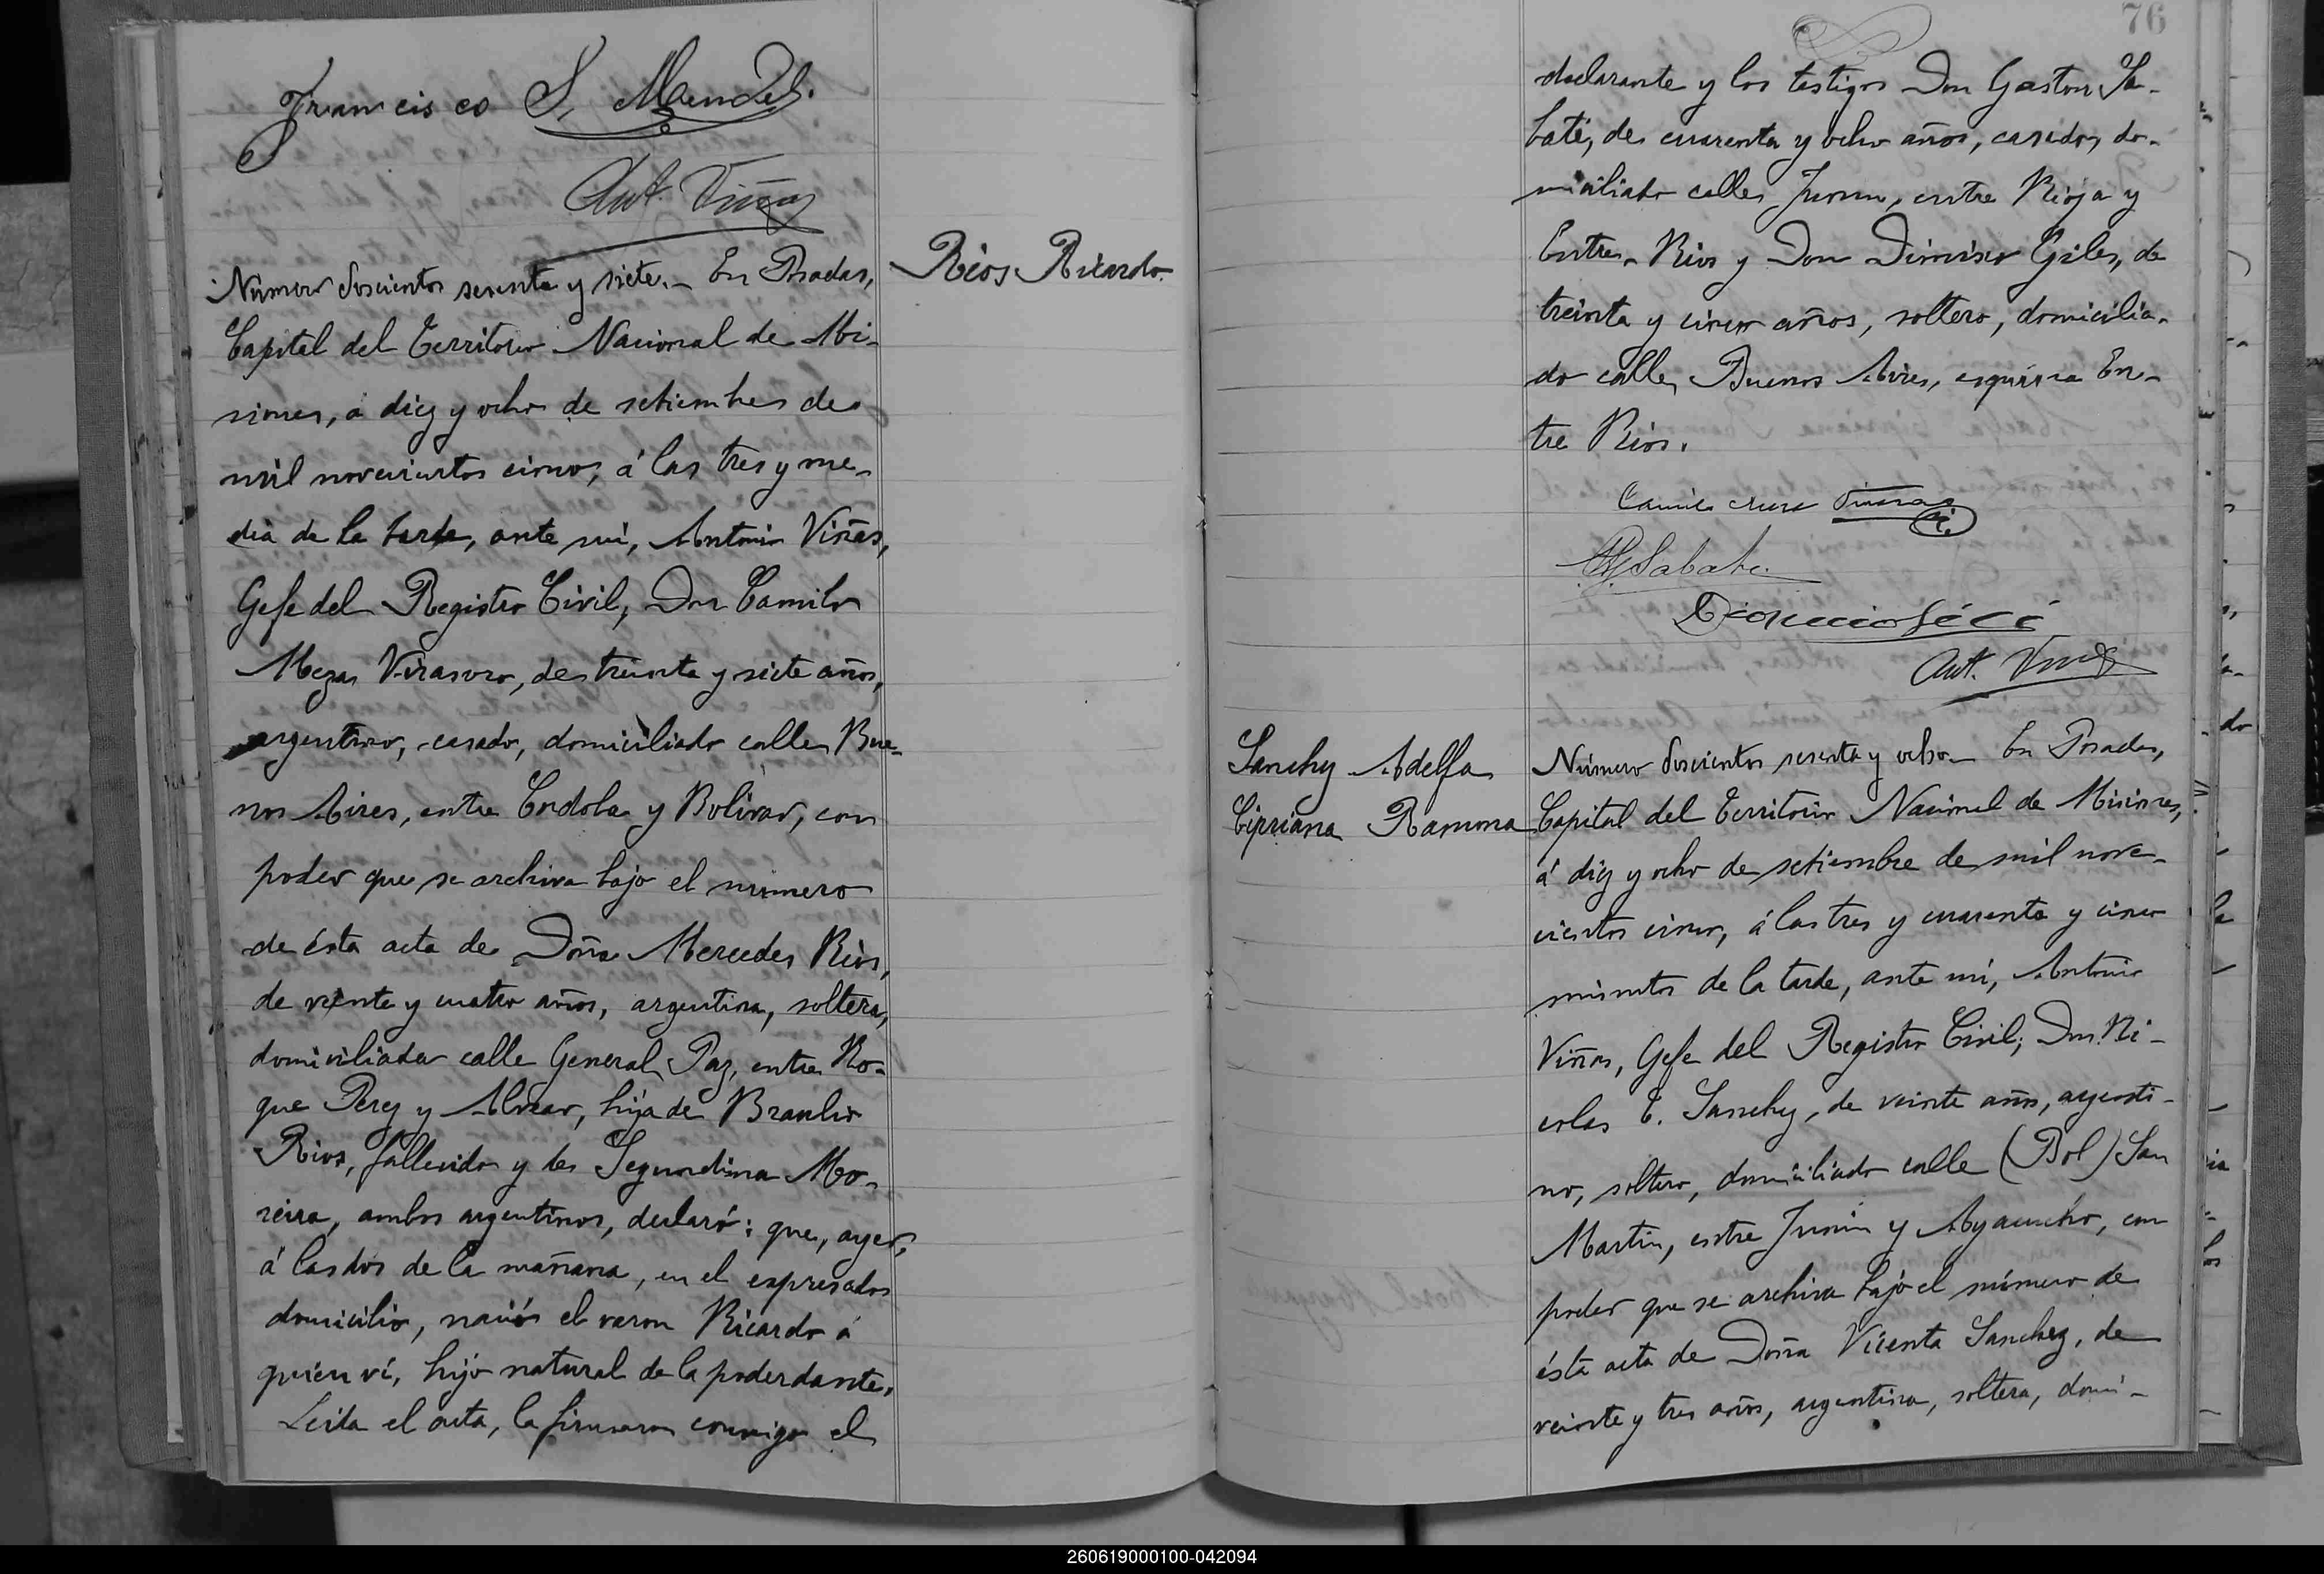 Francisco S. Mendez.
Ant. Viñas
Número doscientos sesenta y siete.- En Posadas,
Capital del Territorio Nacional de Mi-
siones, á diez y ocho de setiembre de
mil novecientos cinco, á las tres y me-
dia de la tarde, ante mí, Antonio Viñas,
Gefe del Registro Civil, Don Camilo
Meza Virasoro, de treinta y siete años,
argentino, casado, domiciliado calle Bue-
nos Aires, entre Cordoba y Bolivar, con
poder que se archiva bajo el numero
de ésta acta de Doña Mercedes Rios,
de veinte y cuatro años, argentina, soltera,
domiciliada calle General Paz, entre Ro-
que Perez y Alvear, hija de Braulio
Rios, fallecido y de Segundina Mo-
reira, ambos argentinos, declaró: que, ayer,
á las dos de la mañana, en el expresado
domicilio, nació el varon Ricardo á
quien ví, hijo natural de la poderdante.
Leida el acta, la firmaron conmigo el
Rios Ricardo.
76
declarante y los testigos Don Gaston Sa-
baté, de cuarenta y ocho años, casado, do-
miciliado calle Junin, entre Rioja y
Entre Rios y Don Dionisio Giles, de
treinta y cinco años, soltero, domicilia-
do calle Buenos Aires, esquina En-
tre Rios.
Camilo Meza Virasoro
Sabaté
Dionicio
Ant. Viñas
Sanchez Adelfa
Cipriana Ramona
Número doscientos sesenta y ocho.- En Posadas,
Capital del Territorio Nacional de Misiones,
á diez y ocho de setiembre de mil nove-
cientos cinco, á las tres y cuarenta y cinco
minutos de la tarde, ante mí, Antonio
Viñas, Gefe del Registro Civil; Don Ni-
colas E. Sanchez, de veinte años, argenti-
no, soltero, domiciliado calle (Bol) San
Martin, entre Junin y Ayacucho, con
poder que se archiva bajo el número de
ésta acta de Doña Vicenta Sanchez, de
veinte y tres años, argentina, soltera, domi-
260619000100-042094